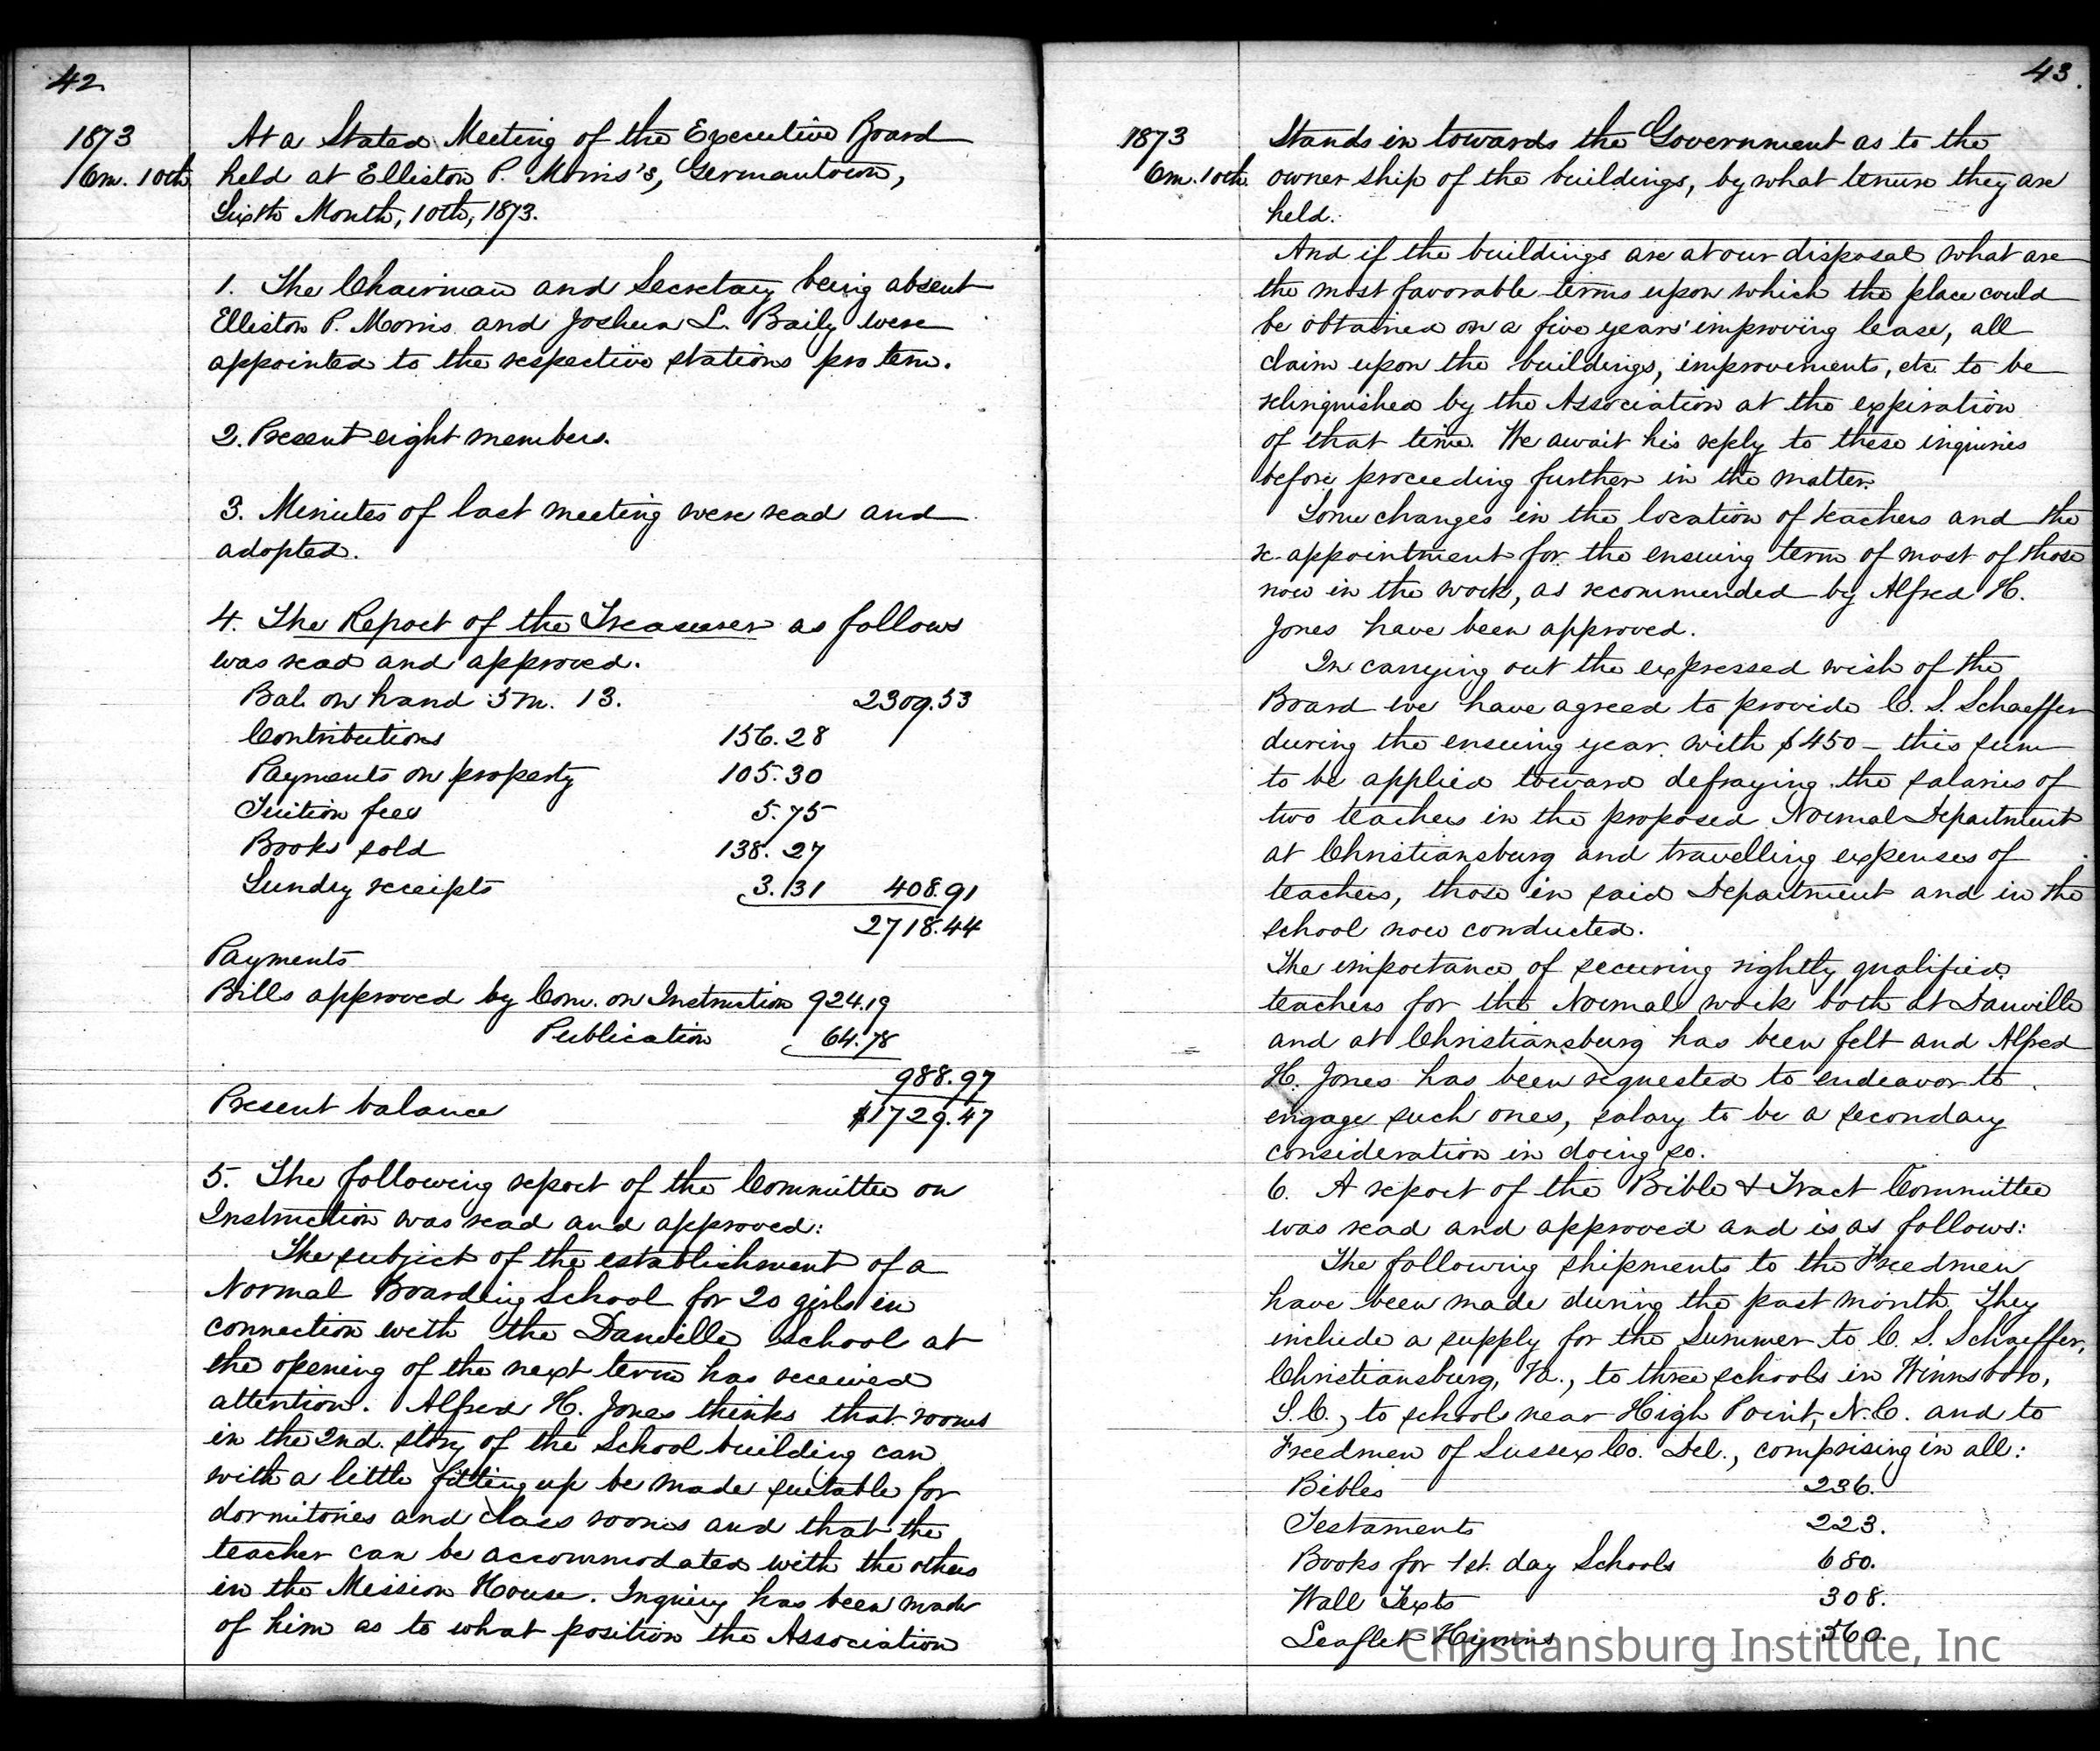 42
1873
6m. 10th
At a Stated Meeting of the Executive Board
held at Elliston P. Morris's, Germantown,
Sixth Month, 10th, 1873.
1. The Chairman and Secretary being absent
Elliston P. Morris and Joshua L. Baily were
appointed to the respective stations pro tem.
2. Present eight members.
3. Minutes of last meeting were read and
adopted.
4. The Report of the Treasurer as follows
was read and approved.
Bal. on hand 5m. 13. 2309.53
Contributions 156.28
Payments on property 105.30
Tuition fees 5.75
Books sold 138.27
Sundry receipts 3.31 408.91
2718.44
Payments
Bills approved by Com. on Instruction 924.19
Publication 64.78
988.97
Present balance $1729.47
5. The following report of the Committee on
Instruction was read and approved:
The subject of the establishment of a
Normal Boarding School for 20 girls in
connection with the Danville school at
the opening of the next term has received
attention. Alfred H. Jones thinks that rooms
in the 2nd. story of the School building can
with a little fitting up be made suitable for
dormitories and class rooms and that the
teacher can be accommodated with the others
in the Mission House. Inquiry has been made
of him as to what position the Association
43.
1873
6m. 10th.
Stands in towards the Government as to the
ownership of the buildings, by what tenure they are
held.
And if the buildings are at our disposal what are
the most favorable terms upon which the place could
be obtained on a five years' improving lease, all
claim upon the buildings, improvements, etc to be
relinquished by the Association at the expiration
of that time. We await his reply to these inquiries
before proceeding further in the matter.
Some changes in the location of teachers and the
re-appointment for the ensuing term of most of those
now in the work, as recommended by Alfred H.
Jones have been approved.
In carrying out the expressed wish of the
Board we have agreed to provide C. S. Schaeffer
during the ensuing year with $450 - this sum
to be applied toward defraying the salaries of
two teachers in the proposed Normal Department
at Christiansburg and travelling expenses of
teachers, those in said Department and in the
school now conducted.
The importance of securing rightly qualified
teachers for the Normal work both at Danville
and at Christiansburg has been felt and Alfred
H. Jones has been requested to endeavor to
engage such ones, salary to be a secondary
consideration in doing so.
6. A report of the Bible & Tract Committee
was read and approved and is as follows:
The following shipments to the Freedmen
have been made during the past month. They
include a supply for the Summer to C. S. Schaeffer,
Christiansburg, Va., to three schools in Winnsboro,
S.C., to schools near High Point, N.C. and to
Freedmen of Sussex Co. Del., comprising in all:
Bibles 236.
Testaments 223.
Books for 1st. day Schools 680.
Wall Texts 308.
Leaflet Hymns 560.
Christiansburg Institute, Inc